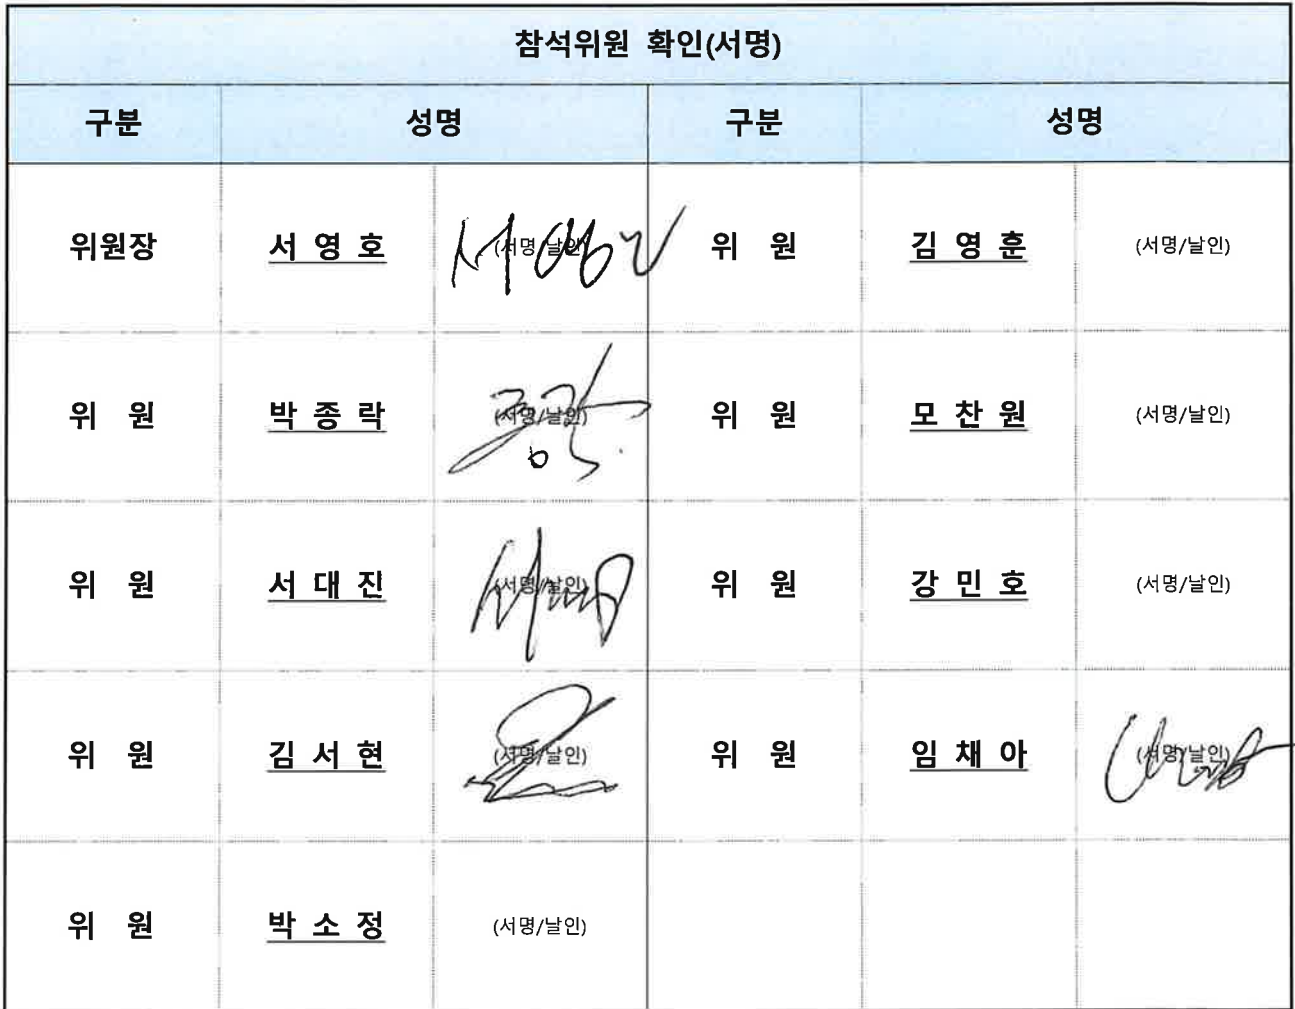 참석위원 확인(서명)
구분 성명 구분 성명
위원장 서 영 호 (서명/날인) 위 원 김 영 훈 (서명/날인)
위 원 박 종 락 (서명/날인) 위 원 모 찬 원 (서명/날인)
위 원 서 대 진 (서명/날인) 위 원 강 민 호 (서명/날인)
위 원 김 서 현 (서명/날인) 위 원 임 채 아 (서명/날인)
위 원 박 소 정 (서명/날인)